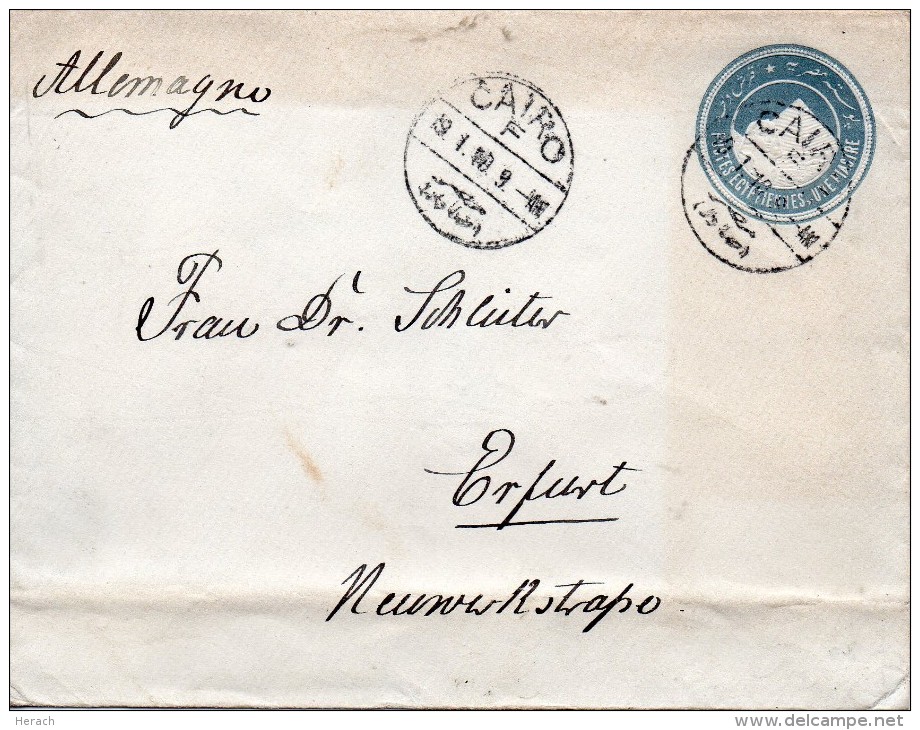 Allemagne
CAIRO
F
POSTES EGYPTIENNES. UNE PIASTRE
CAIRO
Frau Dr. Schlüter
Erfurt
Neuwerkstraße
Herach
www.delcampe.net